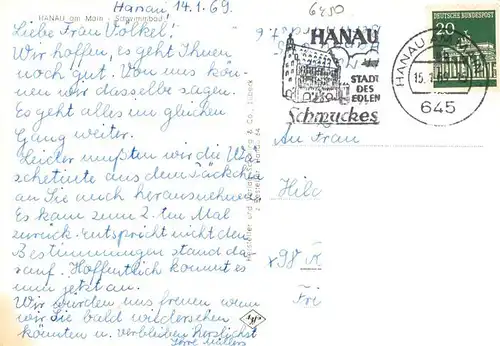 Hanau 14.1.69.
HANAU am Main - Schwimmbad
Liebe Frau Völkel!
Wir hoffen, es geht Ihnen
noch gut. Von uns kön-
nen wir dasselbe sagen.
Es geht alles im gleichen
Gang weiter.
Leider mußten wir die Wä
schetinte aus dem Päckchen
an Sie auch herausnehmen.
Es kam zum 2. ten Mal
zurück. entspricht nicht den
Bestimmungen stand da-
rauf. Hoffentlich kommt es
nun jetzt an.
Wir würden uns freuen wenn
wir Sie bald wiedersehen
könnten u. verbleiben herzlichst
Ihre Millers
HANAU
STADT
DES
EDLEN
Schmuckes
HANAU
15.1.69
645
DEUTSCHE BUNDESPOST
20
An Frau
Hild
+98
Agfa